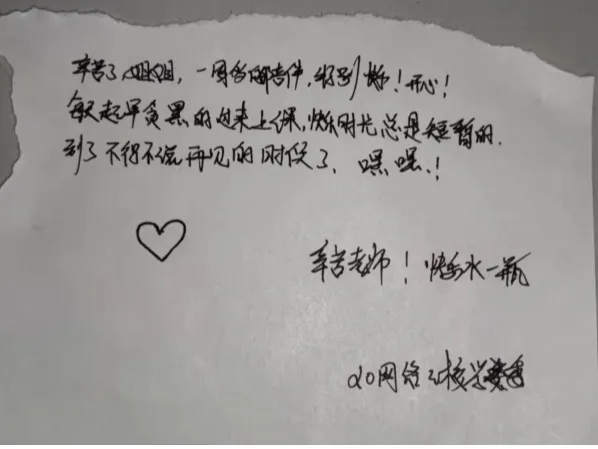 辛苦了姐姐，一周多的陪伴，特别快乐！开心！
每天起早贪黑的过来上课，快乐时光总是短暂的.
到了不得不说再见的时候了、嘿嘿.！
辛苦老师！快乐水一瓶
20网络